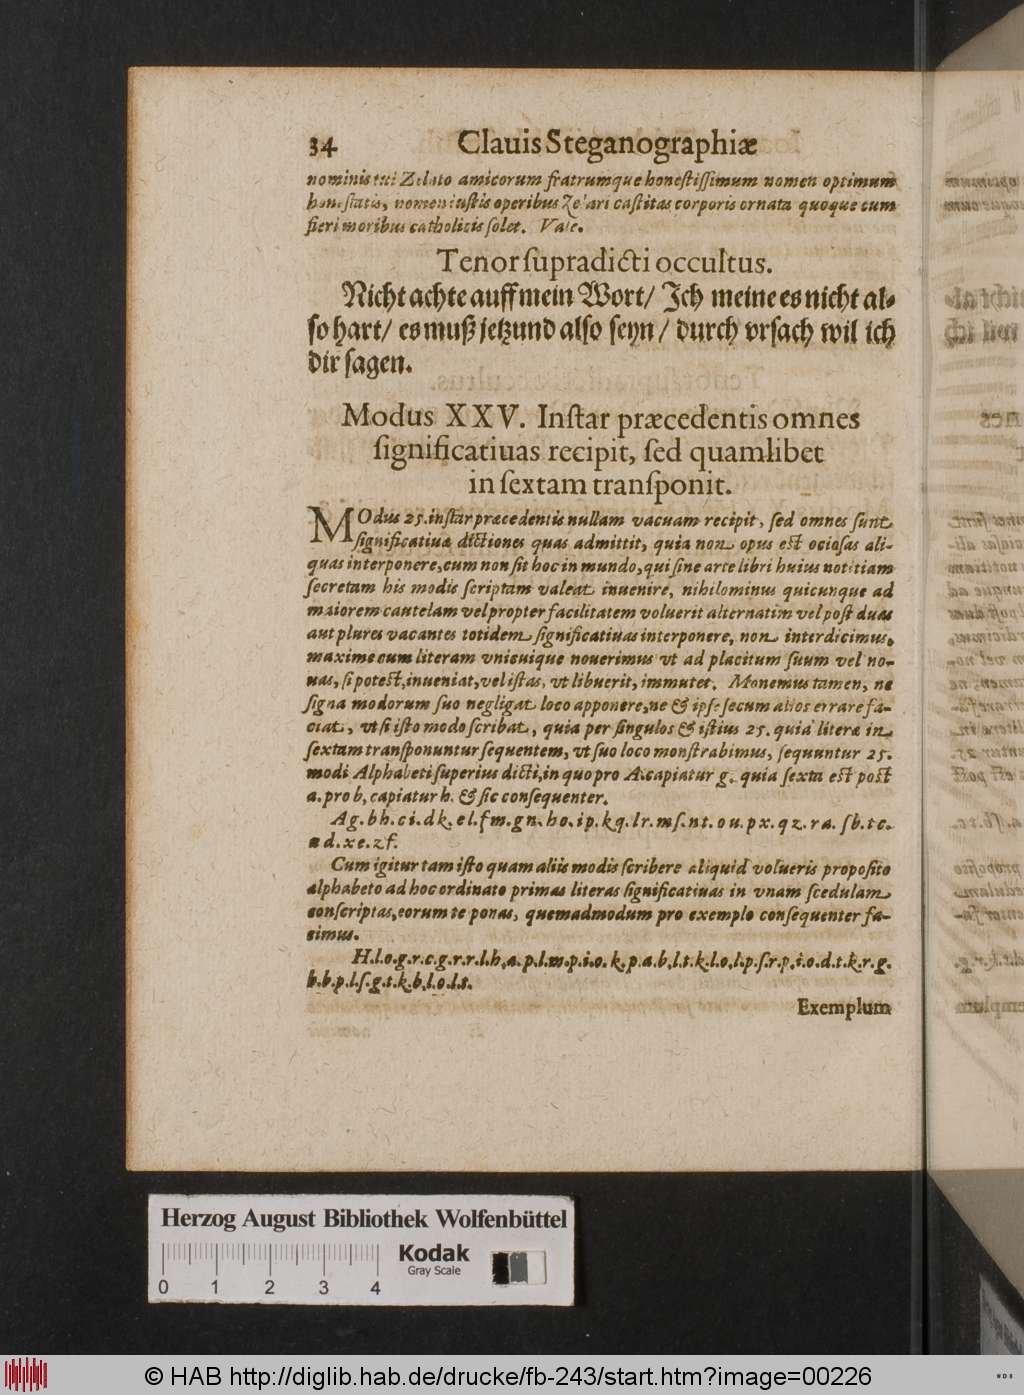 34 Clauis Steganographiæ
nominis tui Zelato amicorum fratrumque honestissimum nomen optimum
honestatis, nomen iustis operibus Zelari castitas corporis ornata quoque cum
fieri moribus catholicis solet. Vale.
Tenor supradicti occultus.
Nicht achte auff mein Wort/ Ich meine es nicht al-
so hart/ es muß jetzund also seyn/ durch vrsach wil ich
dir sagen.
Modus XXV. Instar præcedentis omnes
significatiuas recipit, sed quamlibet
in sextam transponit.
MOdus 25. instar præcedentis nullam vacuam recipit, sed omnes sunt
significatiuæ dictiones quas admittit, quia non opus est ociosas ali-
quas interponere, cum non sit hoc in mundo, qui sine arte libri huius notitiam
secretam his modis scriptam valeat inuenire, nihilominus quicunque ad
maiorem cautelam vel propter facilitatem voluerit alternatim vel post duas
aut plures vacantes totidem significatiuas interponere, non interdicimus,
maxime cum literam vnicuique nouerimus vt ad placitum suum vel no-
uas, si potest, inueniat, vel istas, vt libuerit, immutet. Monemus tamen, ne
signa modorum suo negligat loco apponere, ne & ipse secum alios errare fa-
ciat, vt si isto modo scribat, quia per singulos & istius 25. quia literæ in
sextam transponuntur sequentem, vt suo loco monstrabimus, sequuntur 25.
modi Alphabeti superius dicti, in quo pro A. capiatur g. quia sexta est post
a. pro b, capiatur h. & sic consequenter.
Ag. bh. ci. dk. el. fm. gn. ho. ip. kq. lr. ms. nt. ou. px. qz. ra. sb. tc.
ud. xe. zf.
Cum igitur tam isto quam aliis modis scribere aliquid volueris proposito
alphabeto ad hoc ordinato primas literas significatiuas in vnam scedulam
conscriptas, eorum te ponas, quemadmodum pro exemplo consequenter fa-
cimus.
H.l.o.g.r.c.g.r.r.l.h.a.p.l.m.p.i.o.k.p.a.b.l.t.k.l.o.l.p.s.r.p.i.o.d.t.k.r.g.
b.b.p.l.s.g.t.k.b.l.o.l.t.
Exemplum
Herzog August Bibliothek Wolfenbüttel
0 1 2 3 4
Kodak
Gray Scale
© HAB http://diglib.hab.de/drucke/fb-243/start.htm?image=00226